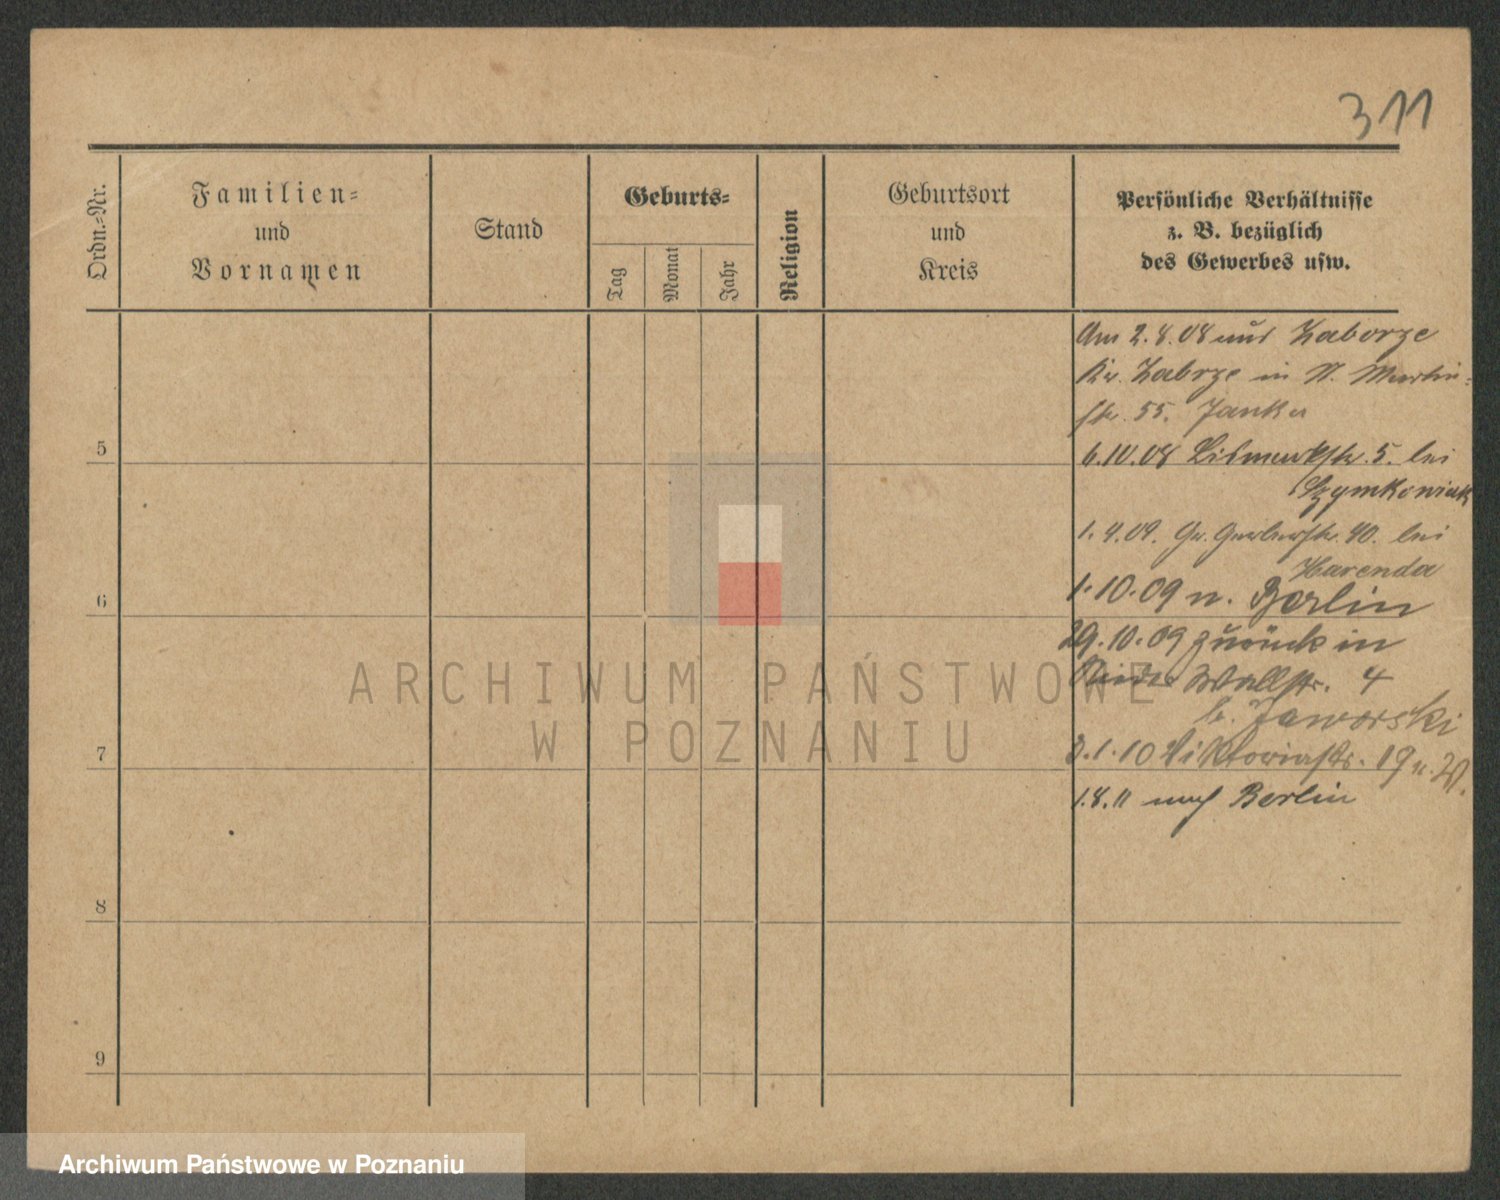 311
Ordn.=Nr.
Familien=
und
Vornamen
Stand
Geburts=
Tag
Monat
Jahr
Religion
Geburtsort
und
Kreis
Persönliche Verhältnisse
z. B. bezüglich
des Gewerbes usw.
Am 2.8.08 aus Zaborze
Kr. Zabrze in St. Martin=
str. 55. Janka
5
6.10.08 Bismarkstr. 5. bei
Szymkowiak
1.4.09. Gr. Gerberstr. 40. bei
Harenda
6
1.10.09 n. Berlin
29.10.09 zurück in
Wallstr. 4
b. Jaworski
7
3.1.10 Viktoriastr. 19
1.8.11 nach Berlin
8
9
ARCHIWUM PAŃSTWOWE
W POZNANIU
Archiwum Państwowe w Poznaniu